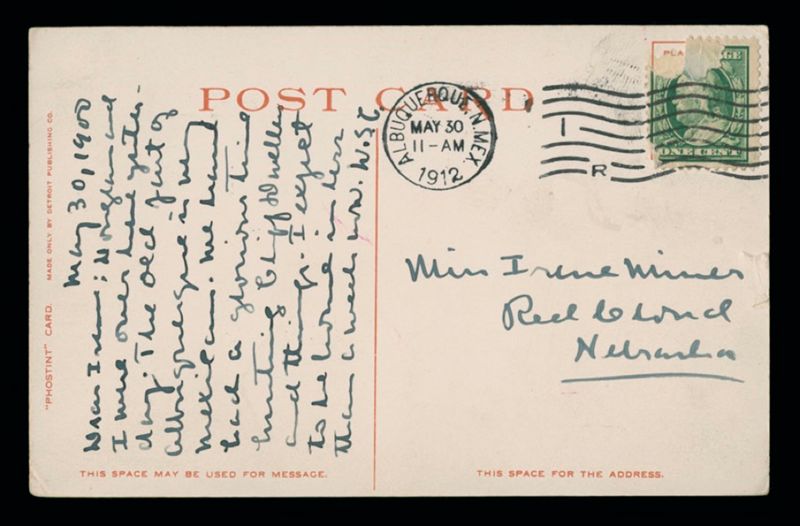 POST CARD
PLA
GE
ALBUQUERQUE N. MEX.
MAY 30
11-AM
1912
I
R
ONE CENT
May 30, 1900
Dear Irene: Douglas and
I were over here yester-
day. The old part of
Albuquerque is very
Mexican. We have
had a glorious time
hunting Cliff Dwellers
and things. I expect
to be home in less
than a week now. W.S.C.
Miss Irene Miner
Red Cloud
Nebraska
"PHOSTINT" CARD. MADE ONLY BY DETROIT PUBLISHING CO.
THIS SPACE MAY BE USED FOR MESSAGE.
THIS SPACE FOR THE ADDRESS.